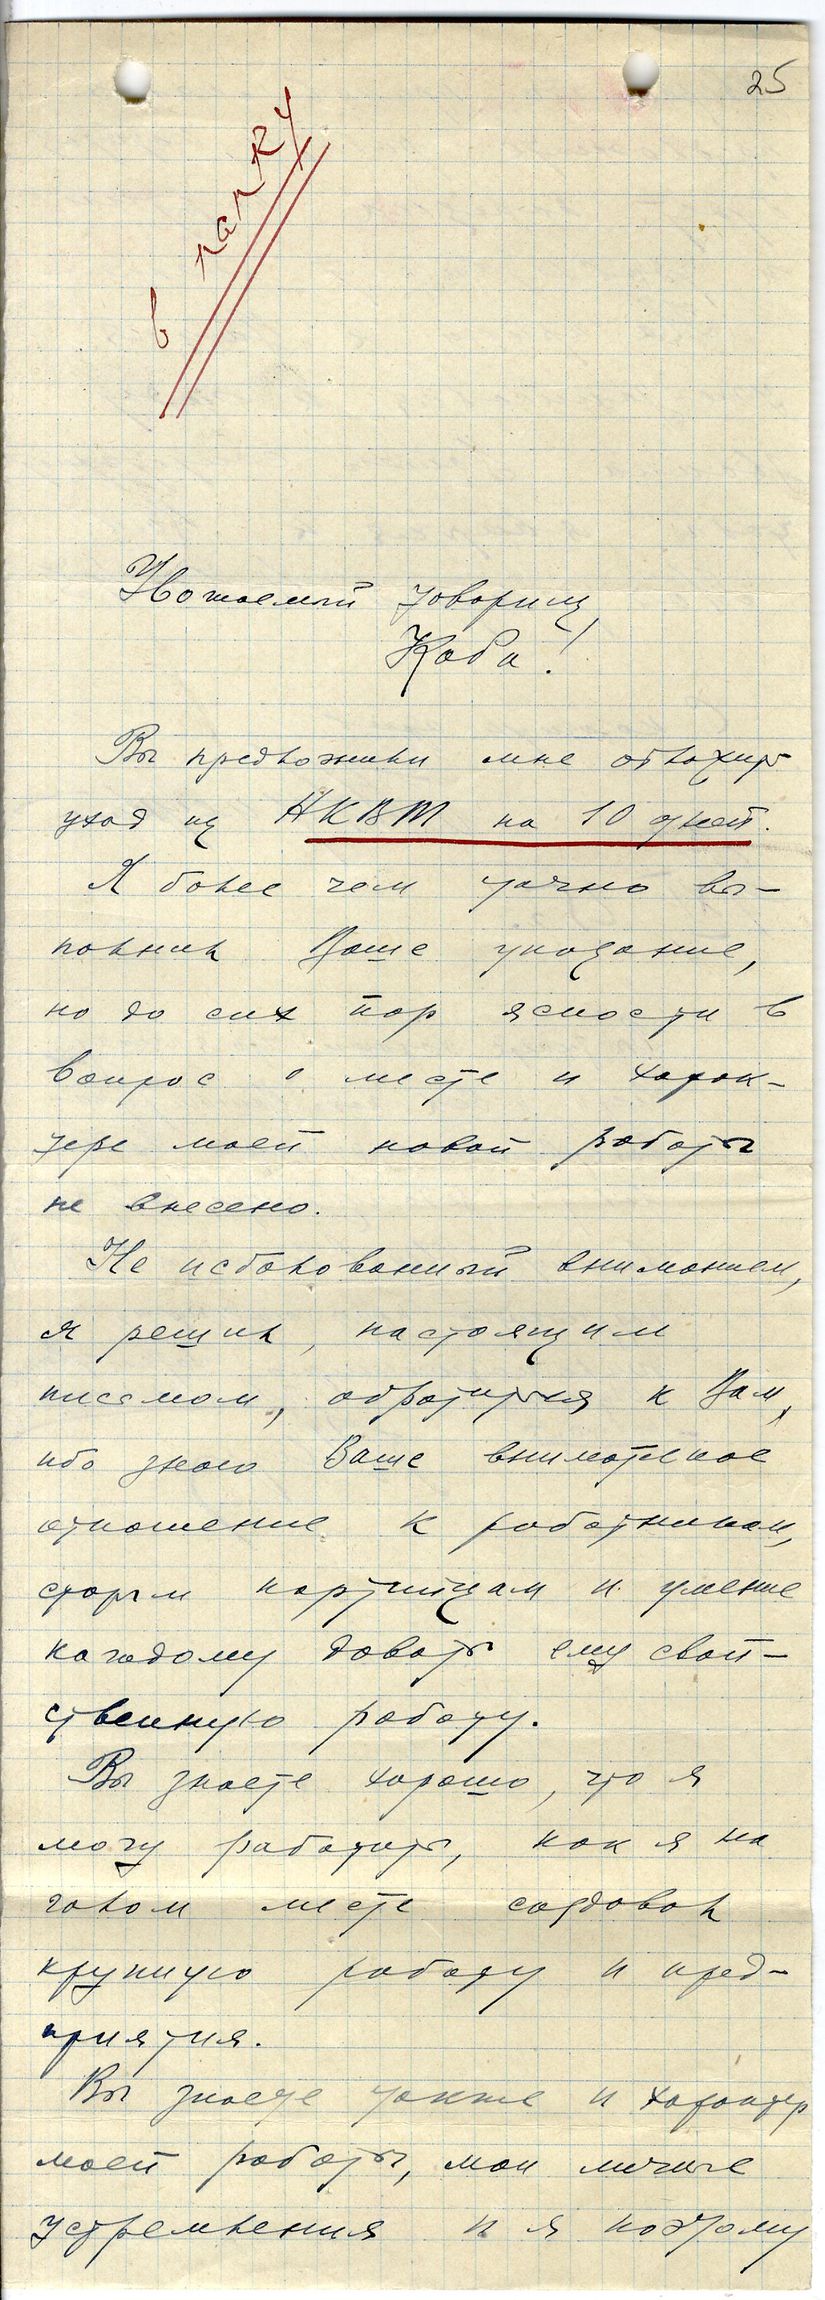 25
в папку
Уважаемый товарищ
Коба!
Вы предложили мне отложить
уход из НКВТ на 10 дней.
Я более чем точно вы-
полнил Ваше указание,
но до сих пор ясности в
вопрос о месте и харак-
тере моей новой работы
не внесено.
Не избалованный вниманием,
я решил, настоящим
письмом, обратиться к Вам,
ибо знаю Ваше внимательное
отношение к работникам,
старым партийцам и умение
каждому давать ему свой-
ственную работу.
Вы знаете хорошо, что я
могу работать, как я на
голом месте создавал
крупную работу и пред-
приятия.
Вы знаете также и характер
моей работы, мои личные
устремления и я поэтому